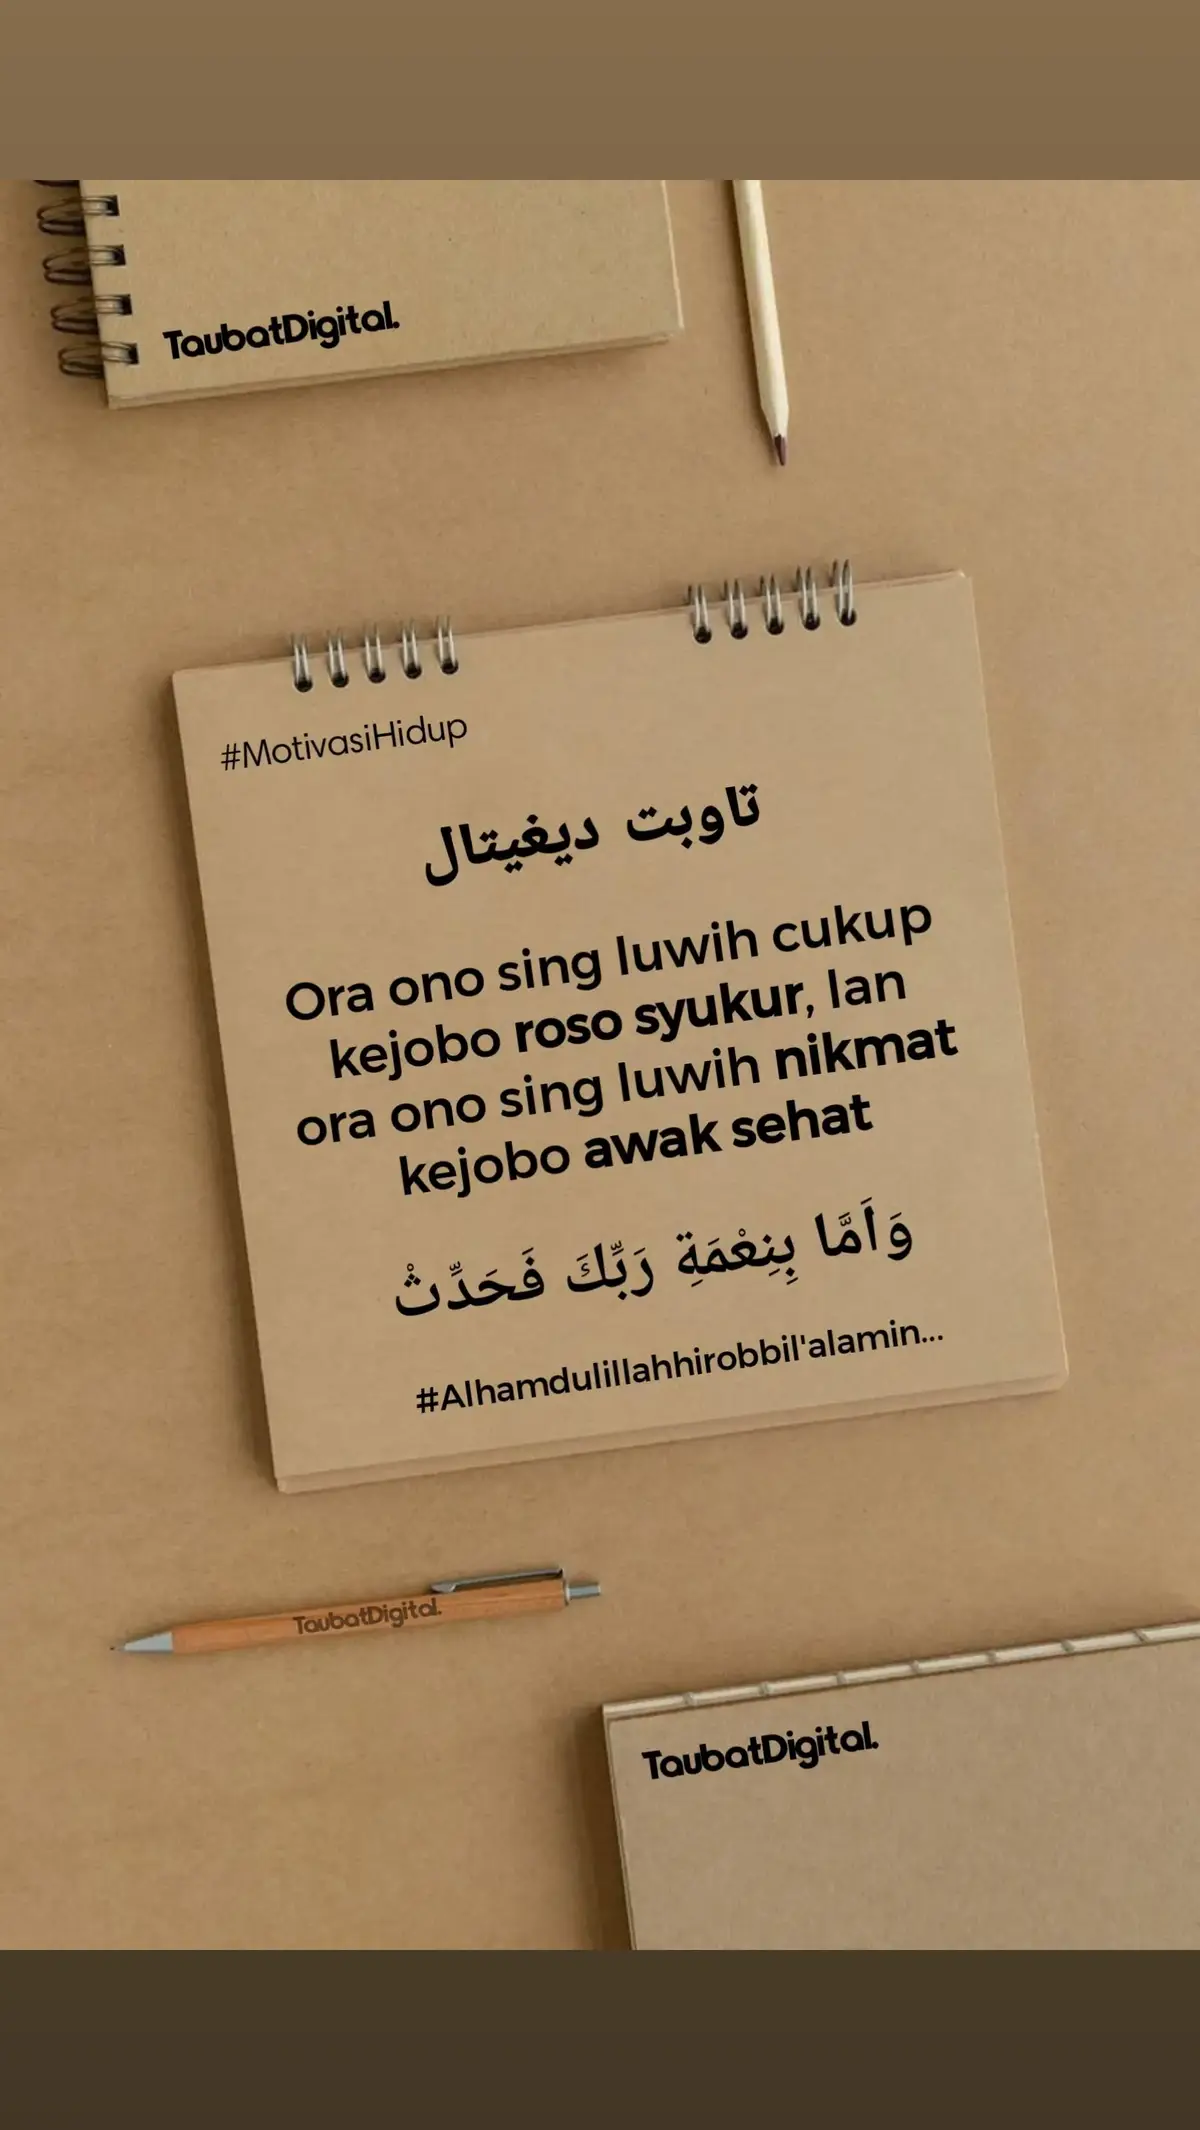 TaubatDigital.
#MotivasiHidup
تاوبت ديغيتال
Ora ono sing luwih cukup
kejobo roso syukur, lan
ora ono sing luwih nikmat
kejobo awak sehat
وَاَمَّا بِنِعْمَةِ رَبِّكَ فَحَدِّثْ
#Alhamdulillahhirobbil'alamin...
TaubatDigital.
TaubatDigital.